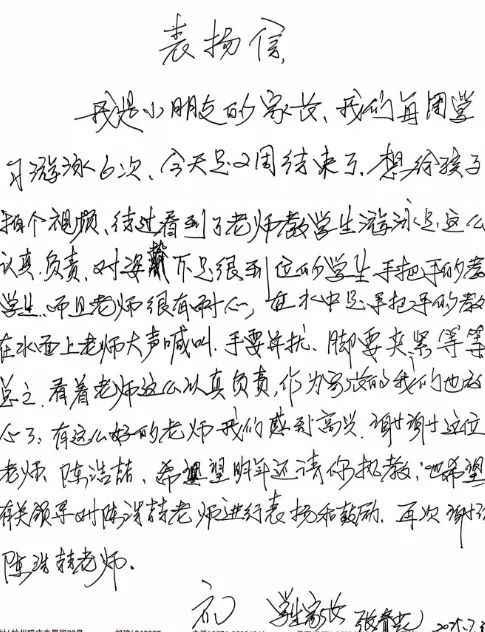 表扬信
我是小朋友的家长、我们每周学
习游泳6次、今天是2周结束了.想给孩子
拍个视频、结过看到了老师教学生游泳是这么
认真.负责.对姿 下足很到位的学生手把手的教
学生.而且老师很有耐心,在水中是手把手的教
在水面上老师大声喊叫.手要并拢、脚要夹紧等等
总之.看着老师这么认真负责,作为家长的我们也放
心了.有这么好的老师我们感到高兴.谢谢这位
老师.陈浩喆、希望明年还请你执教,也希望
有关领导对陈浩喆老师进行表扬和鼓励.再次谢谢
陈浩喆老师.
学生家长